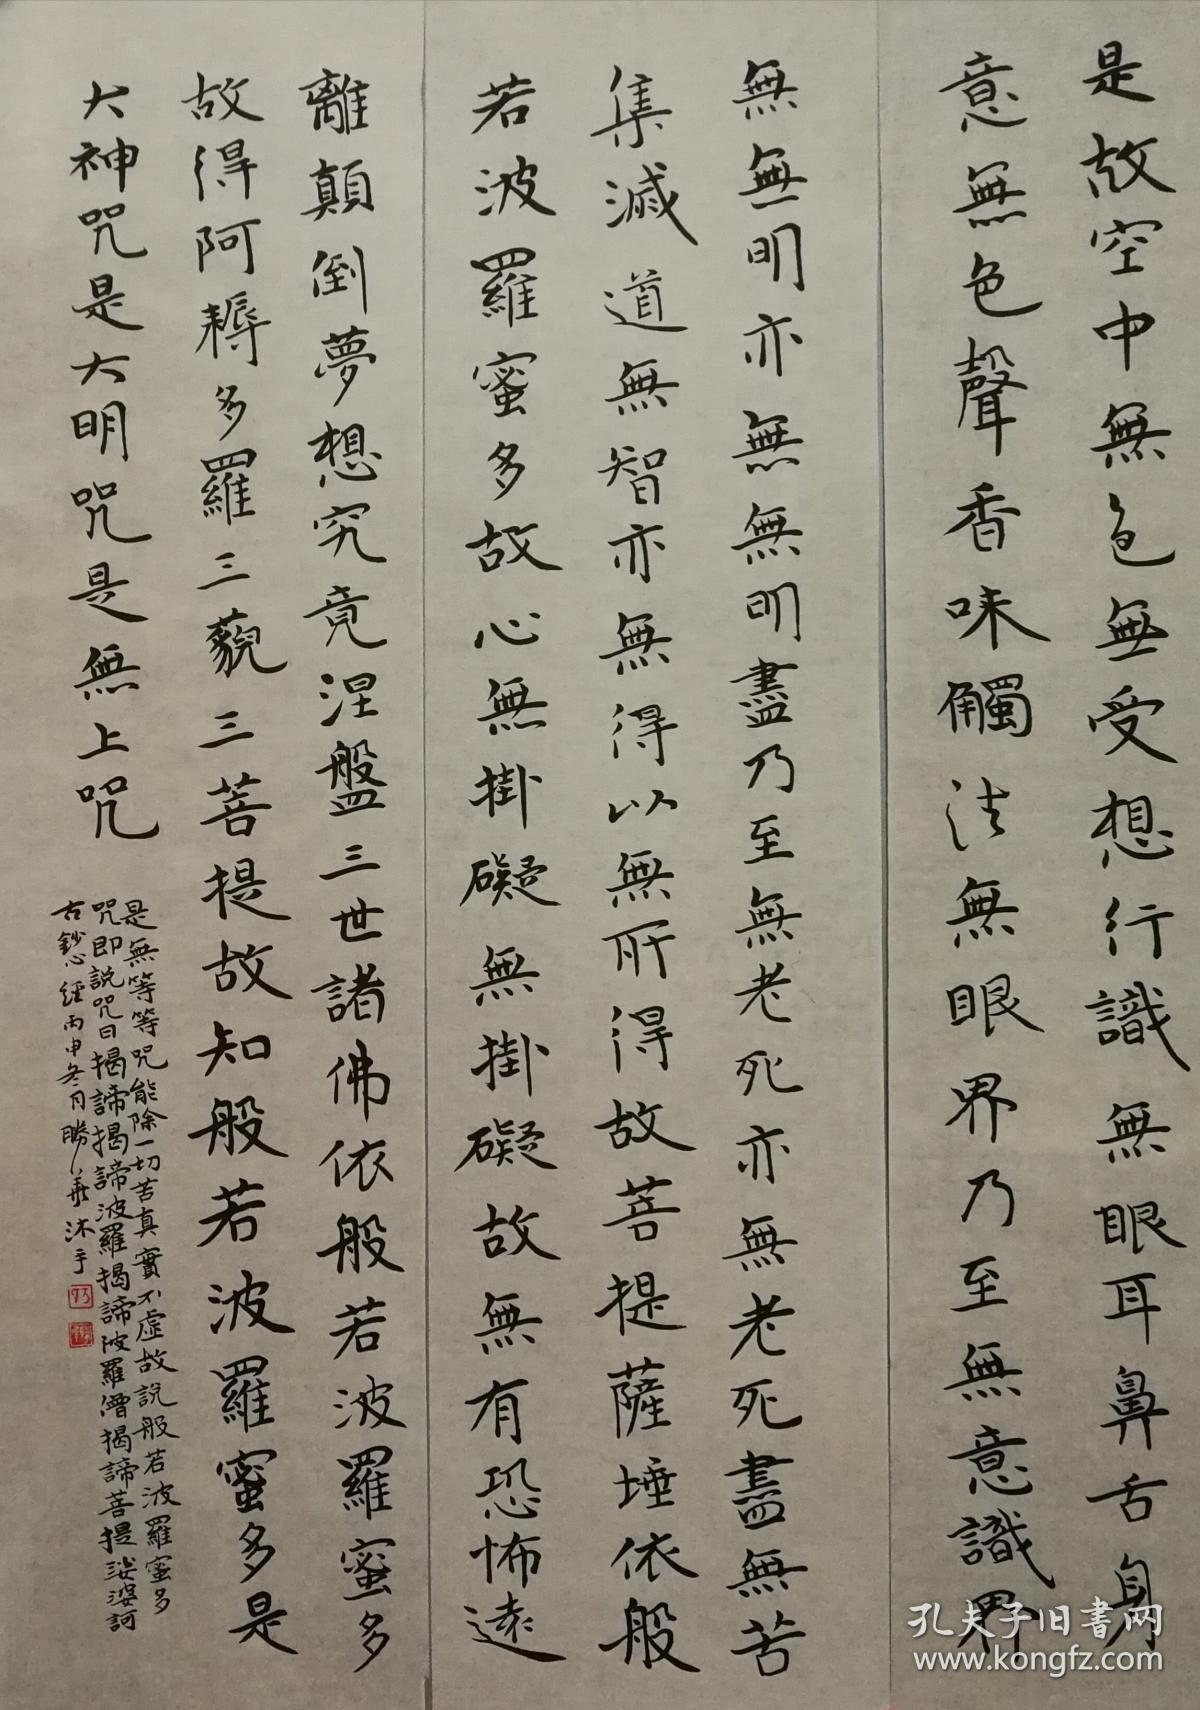 是故空中無色無受想行識無眼耳鼻舌身
意無色聲香味觸法無眼界乃至無意識界
無無明亦無無明盡乃至無老死亦無老死盡無苦
集滅道無智亦無得以無所得故菩提薩埵依般
若波羅蜜多故心無掛礙無掛礙故無有恐怖遠
離顛倒夢想究竟涅盤三世諸佛依般若波羅蜜多
故得阿耨多羅三藐三菩提故知般若波羅蜜多是
大神咒是大明咒是無上咒
是無等等咒能除一切苦真實不虛故說般若波羅蜜多
咒即說咒曰揭諦揭諦波羅揭諦波羅僧揭諦菩提娑婆訶
古鈔心經丙申冬月勝華沐手
孔夫子旧书网
www.kongfz.com